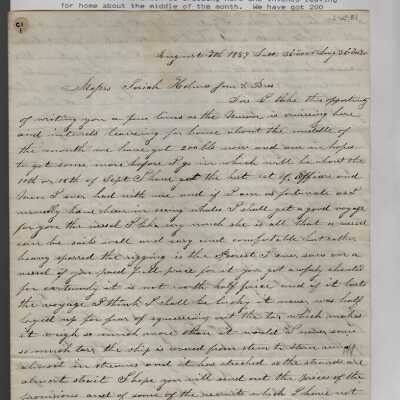 for home about the middle of the month. We have got 200
C1
1
August 7th 1857
Messrs Josiah Holmes Junr & Bros
Sirs I take this opportunity
of writing you a few lines as the Vernon is cruising here
and intends leaving for home about the middle of
the month we have got 200 bbls now and am in hopes
to get some more before I go in which will be about the
10th or 15th of Sept I have got the best set of officers and
men I ever had with me and if I am as fortunate as I
usually have been in seeing whales I shall get a good voyage
for you the vessel I like very much she is all that a vessel
can be sails well and easy and comfortable but rather
heavy sparred the rigging is the I ever saw on a
vessel if you paid full price for it you got awfuly cheated
for certainly it is not worth half price and if it lasts
the voyage I think I shall be lucky it never was half
layed up for fear of squeezing out the tar which makes
it weigh so much more than it would I never saw
so much tarr the ship is from stem to stern
almost in streams and it has streched so the strands are
almost strait I hope you will send out the prices of the
provisions and of some of the recruits which I have not